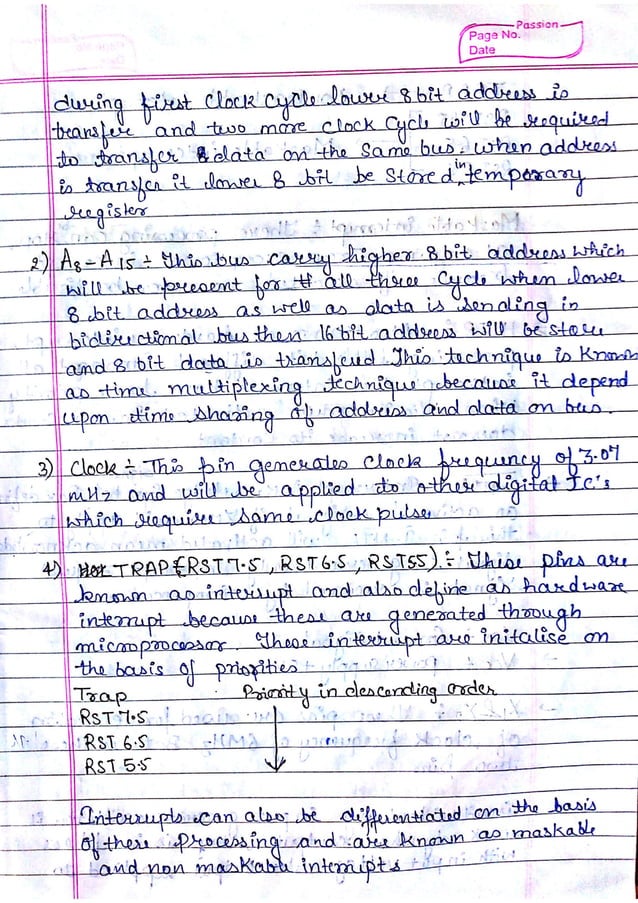 Passion
Page No.
Date
during first clock cycle lower 8 bit address is
transfer and two more clock cycle will be required
to transfer data on the same bus. when address
is transfer it lower 8 bit be stored in temporary
register
2) A8-A15 ÷ This bus carry higher 8 bit address which
will be present for all three cycle when lower
8 bit address as well as data is sending in
bidirectional bus then 16 bit address will be store
and 8 bit data is transferd This technique is known
as time multiplexing technique because it depend
upon time sharing of address and data on bus.
3) Clock ÷ This pin generates clock frequency of 3.07
mHz and will be applied to other digital Ic's
which require same clock pulse
4) TRAP (RST 7.5, RST 6.5, RST55) ÷ These pins are
known as interrupt and also define as hardware
interrupt because these are generated through
microprocessor. These interrupt are initalise on
the basis of priorities
Trap Priority in descending order
RST 7.5
RST 6.5
RST 5.5
Interrupts can also be differentiated on the basis
of there processing and are known as maskable
and non maskable interrupts